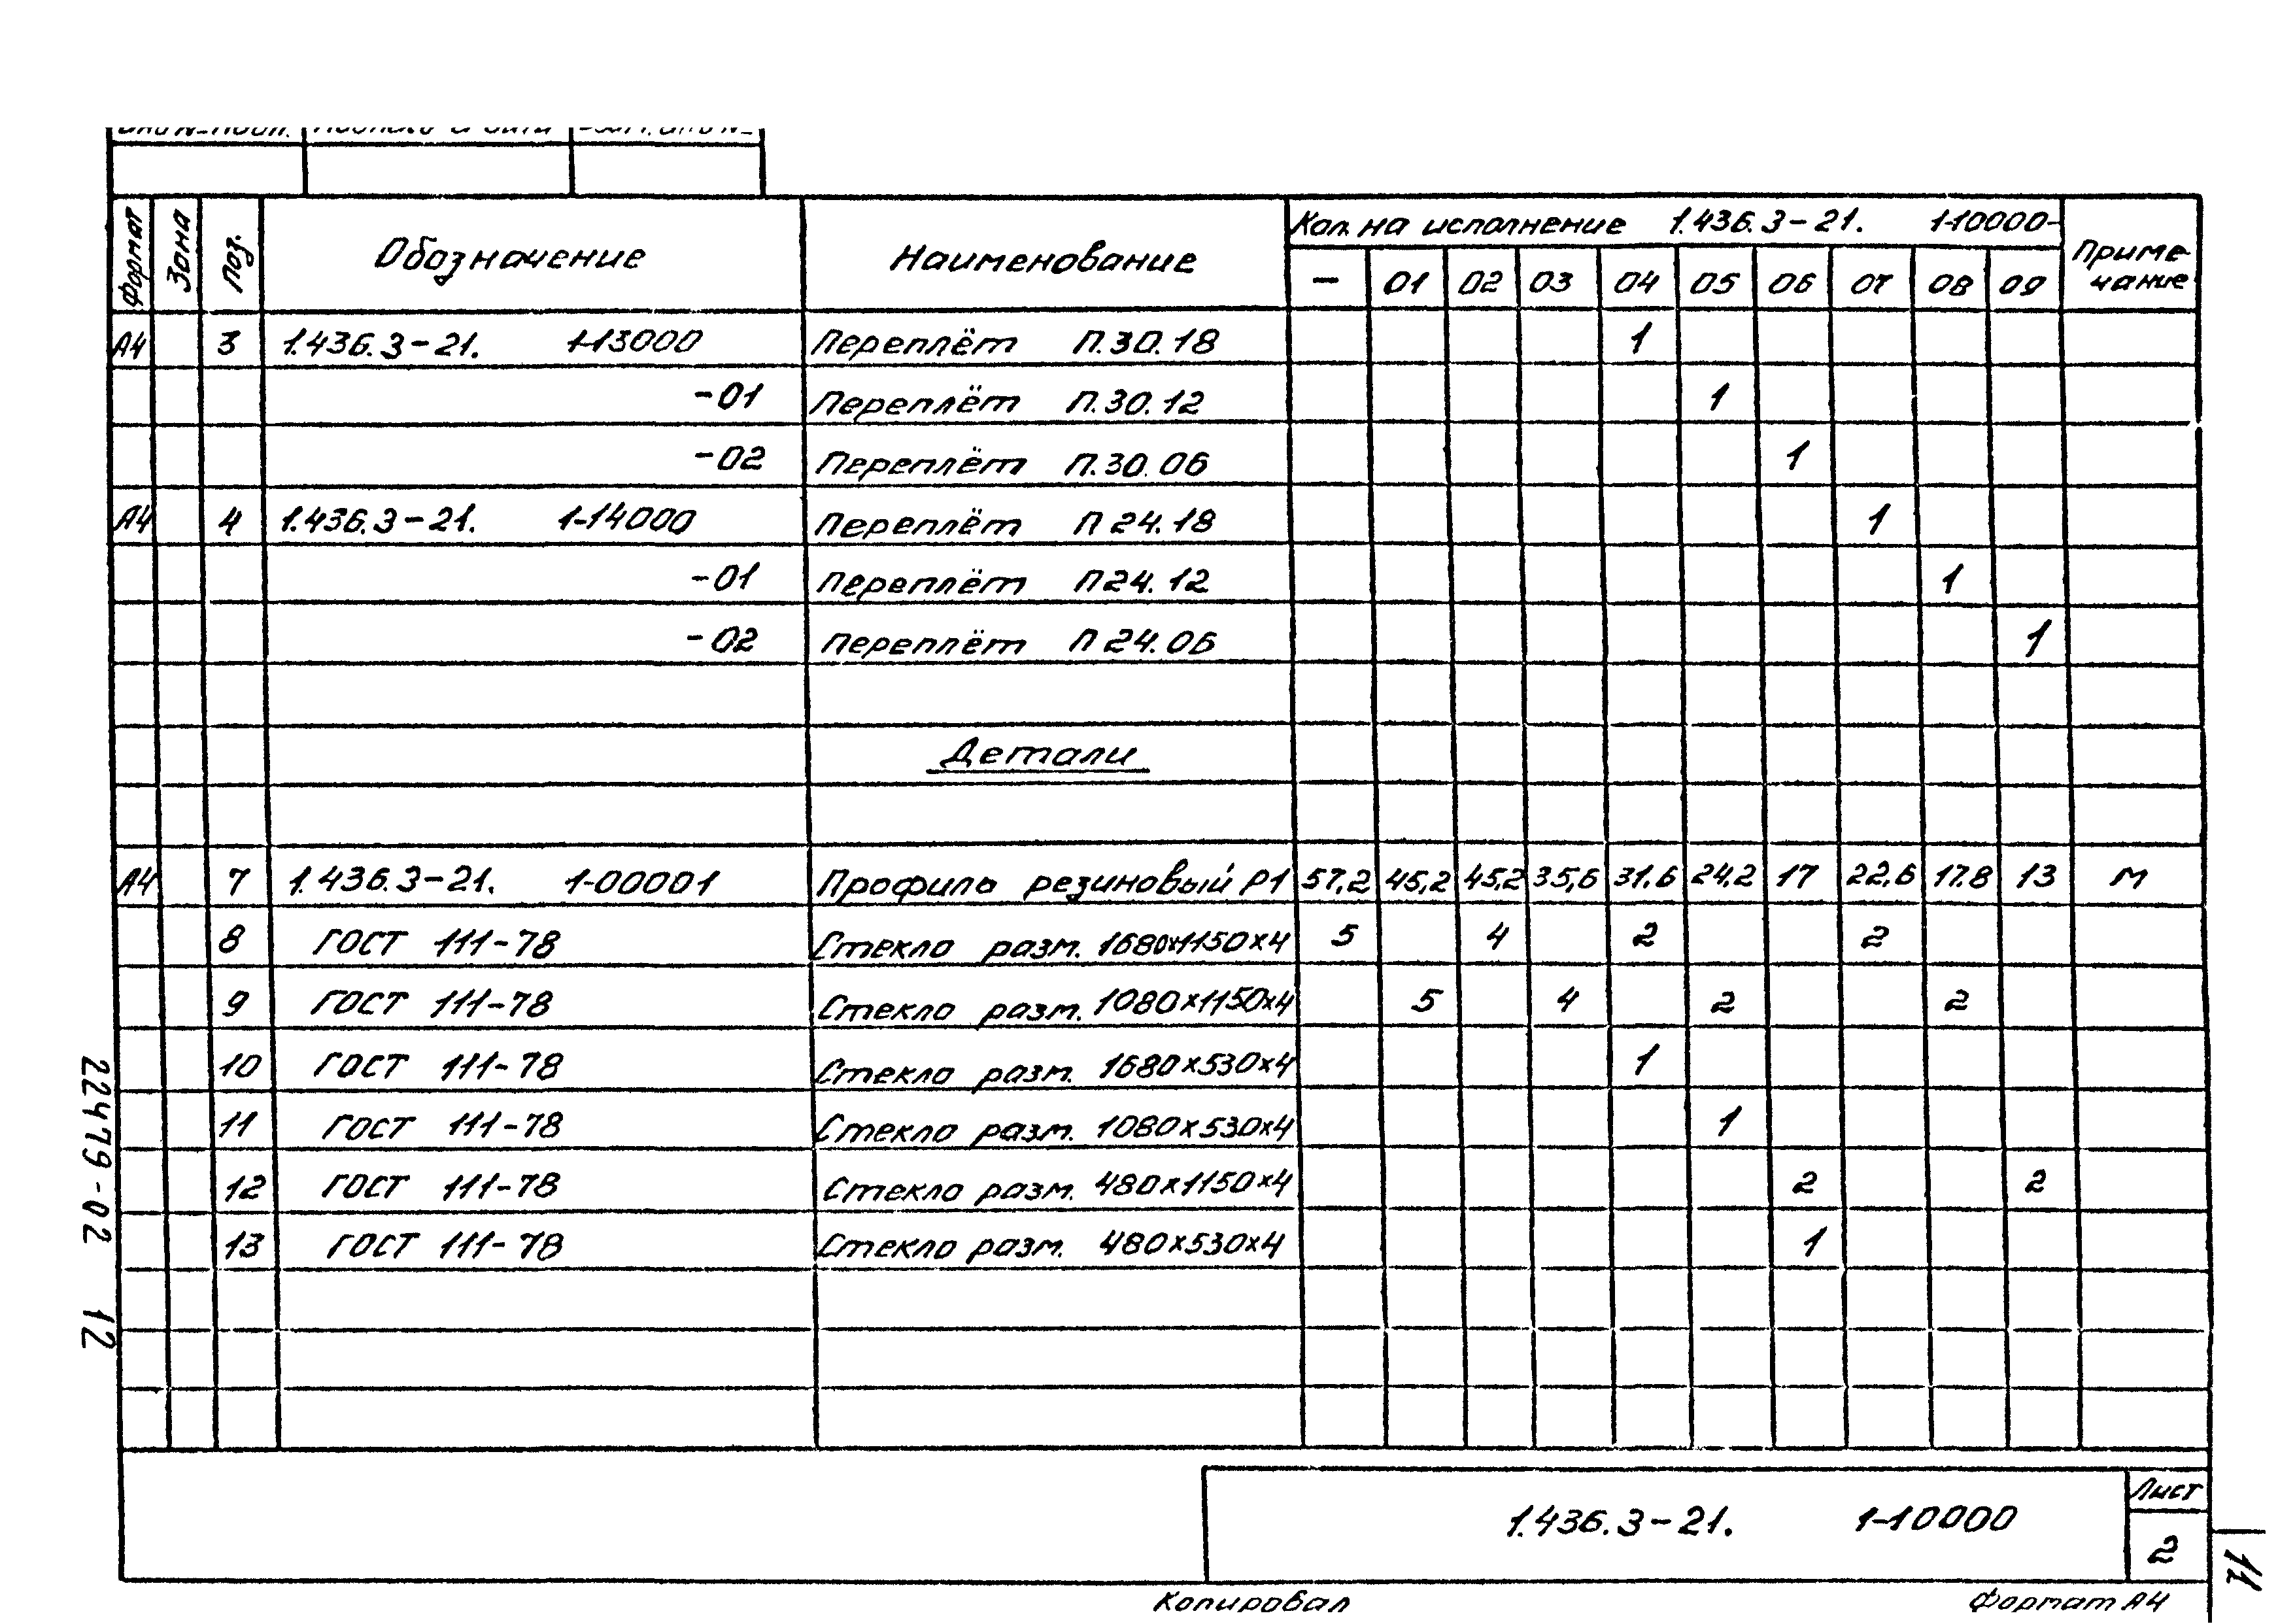 Формат Зона Поз. Обозначение Наименование Кол. на исполнение 1.436.3-21. 1-10000- Приме-
чание
- 01 02 03 04 05 06 07 08 09
А4 3 1.436.3-21. 1-13000 Переплёт П.30.18 1
-01 Переплёт П.30.12 1
-02 Переплёт П.30.06 1
А4 4 1.436.3-21. 1-14000 Переплёт П 24.18 1
-01 Переплёт П 24.12 1
-02 Переплёт П 24.06 1
Детали
А4 7 1.436.3-21. 1-00001 Профиль резиновый Р1 57,2 45,2 45,2 35,6 31,6 24,2 17 22,6 17,8 13 м
8 ГОСТ 111-78 Стекло разм. 1680х1150х4 5 4 2 2
9 ГОСТ 111-78 Стекло разм. 1080х1150х4 5 4 2 2
10 ГОСТ 111-78 Стекло разм. 1680х530х4 1
11 ГОСТ 111-78 Стекло разм. 1080х530х4 1
12 ГОСТ 111-78 Стекло разм. 480х1150х4 2 2
13 ГОСТ 111-78 Стекло разм. 480х530х4 1
22479-02 12
1.436.3-21. 1-10000
Лист
2
11
Копировал Формат А4